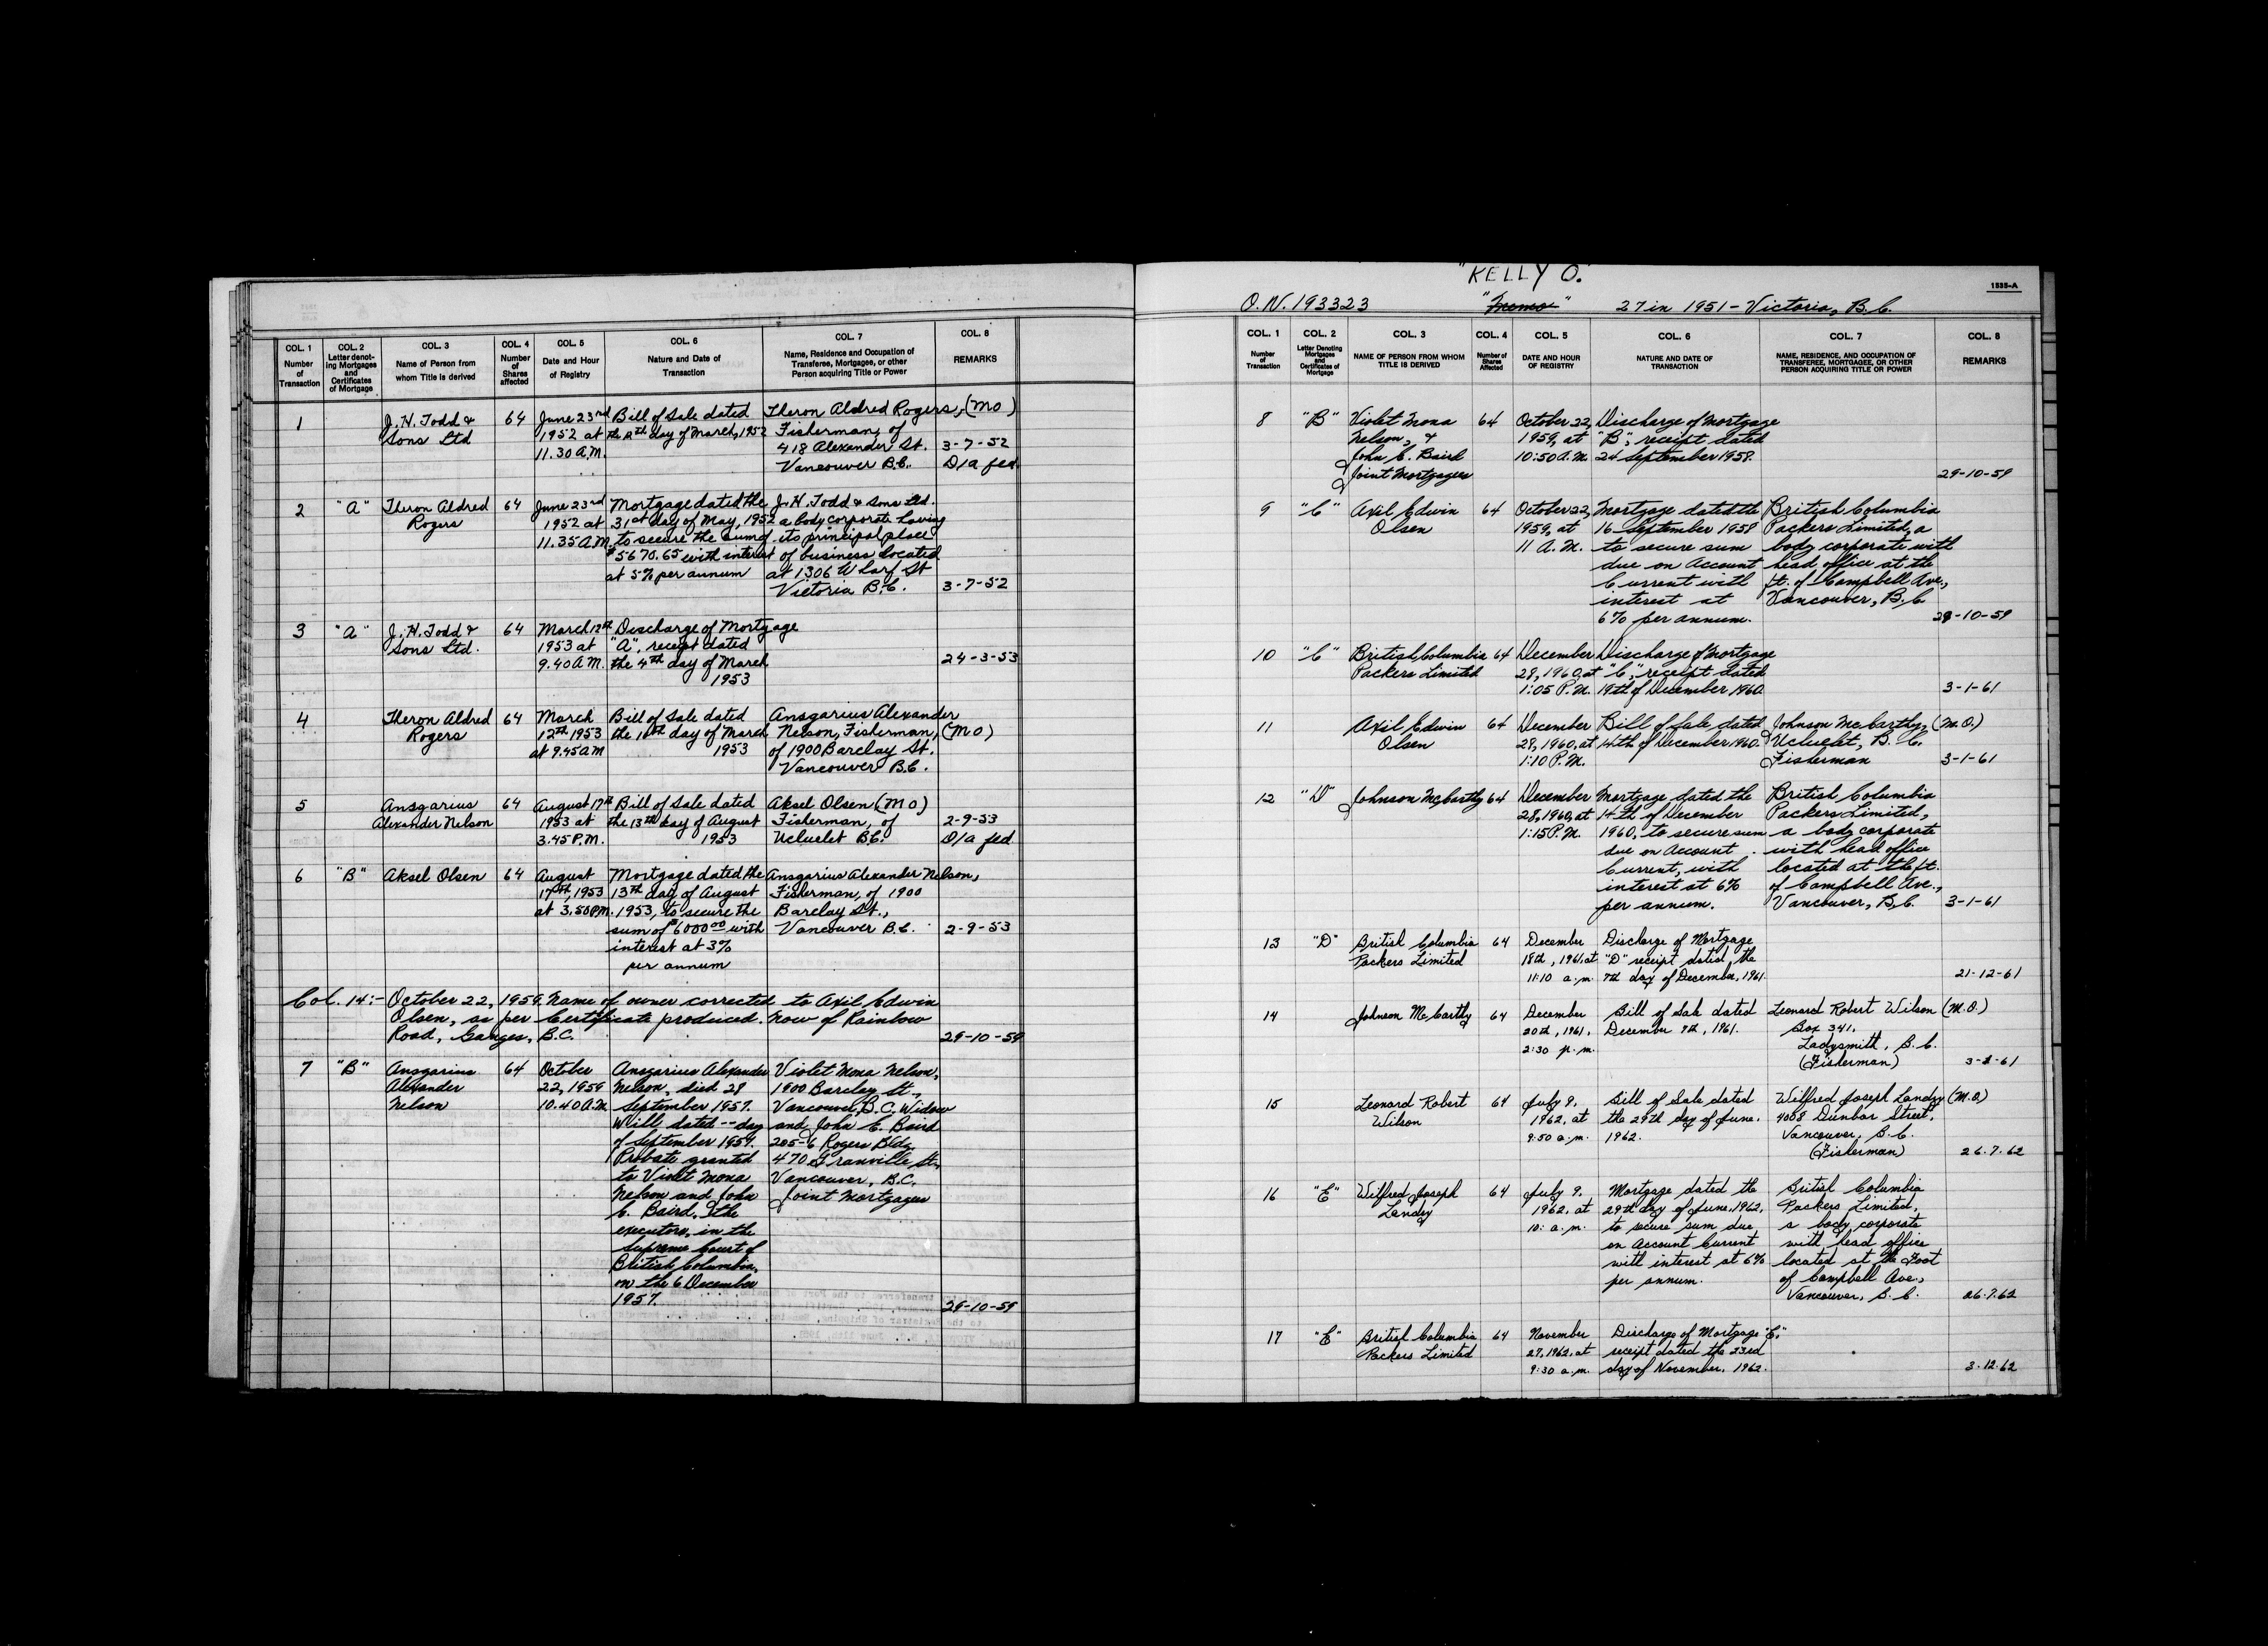 COL. 1 COL. 2 COL. 3 COL. 4 COL. 5 COL. 6 COL. 7 COL. 8
Number of Transaction
Letter denoting Mortgages and Certificates of Mortgage
Name of Person from whom Title is derived
Number of Shares affected
Date and Hour of Registry
Nature and Date of Transaction
Name, Residence and Occupation of Transferee, Mortgages, or other Person acquiring Title or Power
REMARKS
1 J. H. Todd & 64 June 23rd Bill of Sale dated Theron Aldred Rogers, (MO)
Sons Ltd 1952 at the day of March, 1952 Fisherman, of
11.30 A.M. 418 Alexander St. 3-7-52
Vancouver B.C. D/a fed
2 "A" Theron Aldred 64 June 23rd Mortgage dated the J. H. Todd & Sons Ltd.
Rogers 1952 at 31st day of May, 1952 a body corporate having
11.35 A.M. to secure the sum of its principal place
$5670.65 with interest of business located
at 5% per annum at 1306 Wharf St
Victoria B.C. 3-7-52
3 "A" J. H. Todd & 64 March 12th Discharge of Mortgage
Sons Ltd. 1953 at "A", receipt dated
9.40 A.M. the 4th day of March 24-3-53
1953
4 Theron Aldred 64 March Bill of Sale dated Ansgarius Alexander
Rogers 12th, 1953 the day of March Nelson, Fisherman, (MO)
at 9.45 A.M 1953 of 1900 Barclay St.
Vancouver B.C.
5 Ansgarius 64 August 17th Bill of Sale dated Aksel Olsen (MO)
Alexander Nelson 1953 at the 13th day of August Fisherman, of 2-9-53
3.45 P.M. 1953 Ucluelet B.C. D/a fed
6 "B" Aksel Olsen 64 August Mortgage dated the Ansgarius Alexander Nelson,
17th, 1953 13th day of August Fisherman, of 1900
at 3.50 PM. 1953, to secure the Barclay St.,
sum of $6000.00 with Vancouver B.C. 2-9-53
interest at 3%
per annum
Col. 14:- October 22, 1959. Name of owner corrected to Axil Edwin
Olsen, as per Certificate produced. Now of Rainbow
Road, Ganges, B.C. 29-10-59
7 "B" Ansgarius 64 October Ansgarius Alexander Violet Mona Nelson,
Alexander 22, 1959 Nelson, died 28 1900 Barclay St.,
Nelson 10.40 A.M. September 1957. Vancouver, B.C. Widow
Will, dated -- day and John C. Baird
of September 1957. 205-6 Rogers Bldg.
Probate granted 470 Granville St.,
to Violet Mona Vancouver, B.C.
Nelson and John Joint Mortgagees
C. Baird, the
executors, in the
Supreme Court of
British Columbia,
on the 6 December
1957. 29-10-59
"KELLY O."
1535-A
O.N. 193323 27 in 1951 - Victoria, B.C.
COL. 1 COL. 2 COL. 3 COL. 4 COL. 5 COL. 6 COL. 7 COL. 8
Number of Transaction
Letter Denoting Mortgages and Certificates of Mortgage
NAME OF PERSON FROM WHOM TITLE IS DERIVED
Number of Shares Affected
DATE AND HOUR OF REGISTRY
NATURE AND DATE OF TRANSACTION
NAME, RESIDENCE, AND OCCUPATION OF TRANSFEREE, MORTGAGE, OR OTHER PERSON ACQUIRING TITLE OR POWER
REMARKS
8 "B" Violet Mona 64 October 22, Discharge of Mortgage
Nelson, & 1959, at "B", receipt dated
John C. Baird 10:50 A.M. 24 September 1958.
Joint Mortgagees 29-10-59
9 "C" Axil Edwin 64 October 22, Mortgage dated the British Columbia
Olsen 1959, at 16 September 1958 Packers Limited, a
11 A.M. to secure sum body corporate with
due on Account head office at the
Current with ft. of Campbell Ave.,
interest at Vancouver, B.C
6% per annum. 29-10-59
10 "C" British Columbia 64 December Discharge of Mortgage
Packers Limited 28, 1960, at "C", receipt dated
1:05 P.M. 19th of December 1960. 3-1-61
11 Axil Edwin 64 December Bill of Sale dated Johnson McCarthy, (M.O.)
Olsen 28, 1960, at 14th of December 1960. Ucluelet, B.C.
1:10 P.M. Fisherman 3-1-61
12 "D" Johnson McCarthy 64 December Mortgage dated the British Columbia
28, 1960, at 14th of December Packers Limited,
1:15 P.M. 1960, to secure sum a body corporate
due on Account with head office
Current, with located at the ft.
interest at 6% of Campbell Ave.,
per annum. Vancouver, B.C. 3-1-61
13 "D" British Columbia 64 December Discharge of Mortgage
Packers Limited 18th, 1961, at "D" receipt dated, the
11:10 a.m. 7th day of December, 1961. 21-12-61
14 Johnson McCarthy 64 December Bill of Sale dated Leonard Robert Wilson (M.O.)
20th, 1961. December 9th, 1961. Box 341,
2:30 p.m. Ladysmith, B.C.
(Fisherman)
15 Leonard Robert 64 July 9. Bill of Sale dated Wilfred Joseph Landry (M.O.)
Wilson 1962, at the 29th day of June. 4008 Dunbar Street,
9:50 a.m. 1962. Vancouver, B.C.
(Fisherman) 26.7.62
16 "E" Wilfred Joseph 64 July 9. Mortgage dated the British Columbia
Landry 1962, at 29th day of June, 1962, Packers Limited,
10: a.m. to secure sum due, a body corporate
on Account Current with head office
with interest at 6% located at the Foot
per annum. of Campbell Ave.,
Vancouver, B.C. 26.7.62
17 "E" British Columbia 64 November Discharge of Mortgage "E",
Packers Limited 27, 1962, at receipt dated the 23rd
9:30 a.m. day of November, 1962. 3.12.62